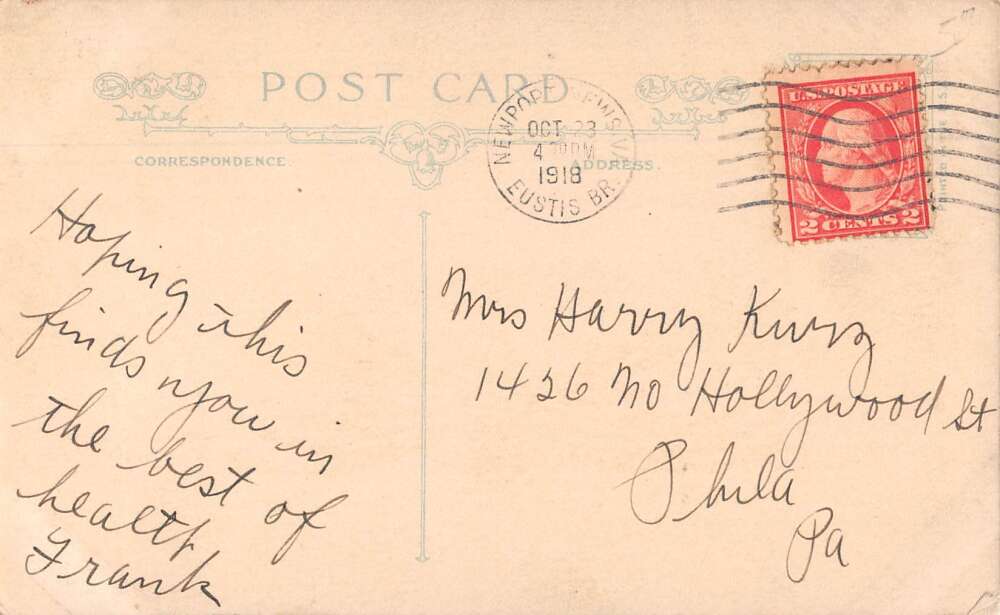 POST CARD
CORRESPONDENCE
ADDRESS.
NEWPORT NEWS, VA.
OCT 23
4 PM
1918
EUSTIS BR.
U.S. POSTAGE
2 CENTS 2
Hoping this
finds you in
the best of
health
Frank
Mrs Harry Kurz
1426 No Hollywood St
Phila
Pa